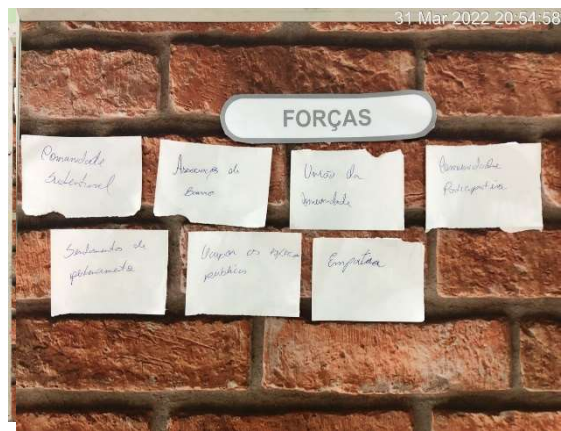 31 Mar 2022 20:54:58
FORÇAS
Comunidade
Sustentável
Associação de
Bairro
União da
Comunidade
Comunidade
Participativa
Sentimentos de
pertencimento
Ocupar os espaços
públicos
Empatia